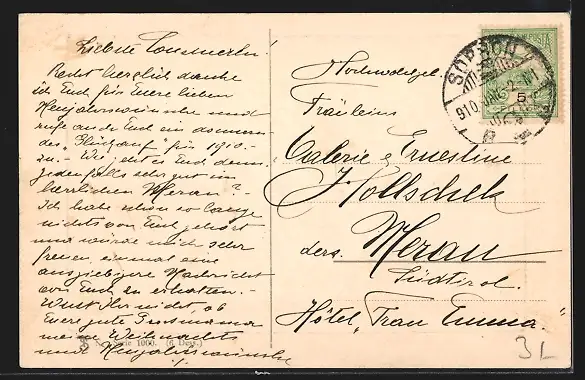 Liebste
Recht herzlich danke
ich Euch für Euere lieben
Neujahrswünsche und
rufe auch Euch ein donnern-
des "Glückauf" für 1910.-
zu. - Wie geht es Euch denn,
jedenfalls sehr gut im
herrlichen Meran? -
Ich habe schon so lange
nichts von Euch gehört
und würde mich sehr
freuen, einmal eine
ausgiebigere Nachricht
von Euch zu erhalten. -
Wisst Ihr nicht, ob
Euere gute Grossmama
meine Weihnachts
und Neujahrswünsche
Serie 1060. (6 Dess.)
Hochwohlgeb.
Fräuleins
Valerie & Ernestine
Hollschek
ders. Meran
Südtirol.
Hôtel "Frau Emma"
POSTA
SOPRON
910 2
5
3L